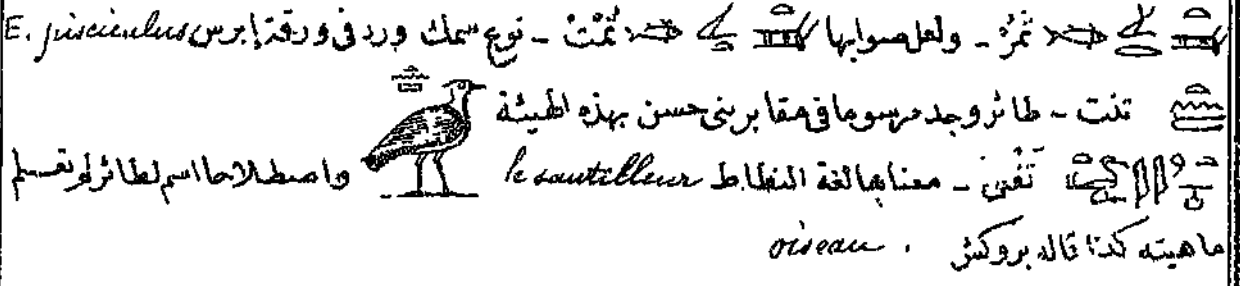 ثَمُرُ ـ ولعل صوابها ثَمْتُ ـ نوع سمك ورد فى ورقة إبرس E. pisciculus
تنت ـ طائر وجد مرسوما فى مقابر بنى حسن بهذه الهيئة
تَفْنِنَ ـ معناها لغة النطاط le sautilleur واصطلاحا اسم لطائر لم تعلم
ماهيته كذا قاله بروكش . oiseau